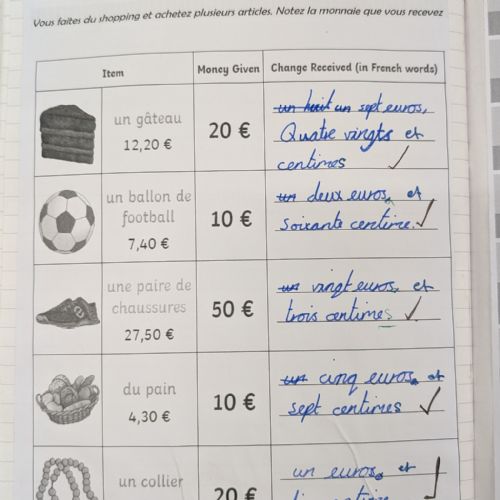 Vous faites du shopping et achetez plusieurs articles. Notez la monnaie que vous recevez
Item
Money Given
Change Received (in French words)
un gâteau
12,20 €
20 €
un huit un sept euros,
Quatre vingts et
centimes
un ballon de
football
7,40 €
10 €
un deux euros, et
soixante centime.
une paire de
chaussures
27,50 €
50 €
un vingt euros, et
trois centimes
du pain
4,30 €
10 €
un cinq euros, et
sept centimes
un collier
20 €
un euros, et